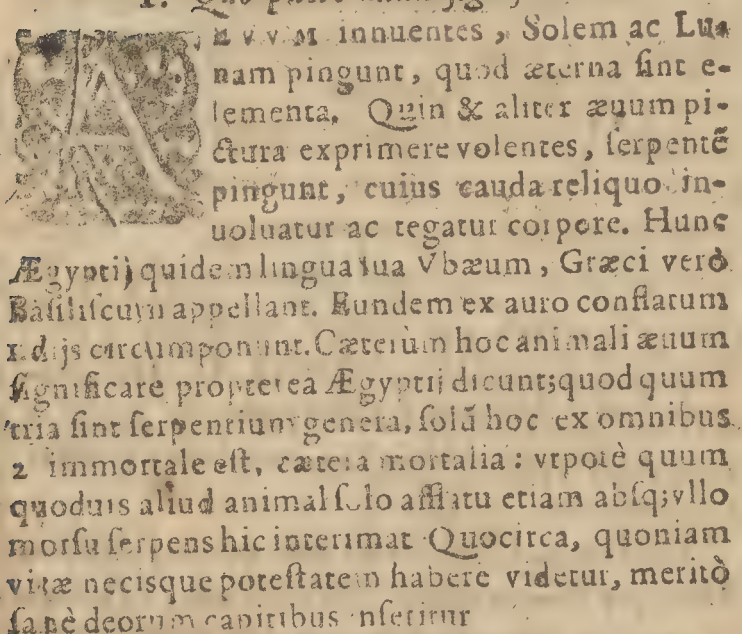 ÆVVM innuentes, Solem ac Lu-
nam pingunt, quod æterna sint e-
lementa. Quin & aliter æuum pi-
ctura exprimere volentes, serpentẽ
pingunt, cuius cauda reliquo in-
uoluatur ac tegatur corpore. Hunc
Ægyptij quidem lingua sua Vbæum, Græci verò
Basiliscum appellant. Eundem ex auro conflatum
1 dijs circumponunt. Cæterùm hoc animali æuum
significare propterea Ægyptij dicunt; quod quum
tria sint serpentium genera, solũ hoc ex omnibus
2 immortale est, cætera mortalia: vtpotè quum
quoduis aliud animal solo afflatu etiam absq; vllo
morsu serpens hic interimat Quocirca, quoniam
vitæ necisque potestatem habere videtur, meritò
sanè deorum capitibus inseritur